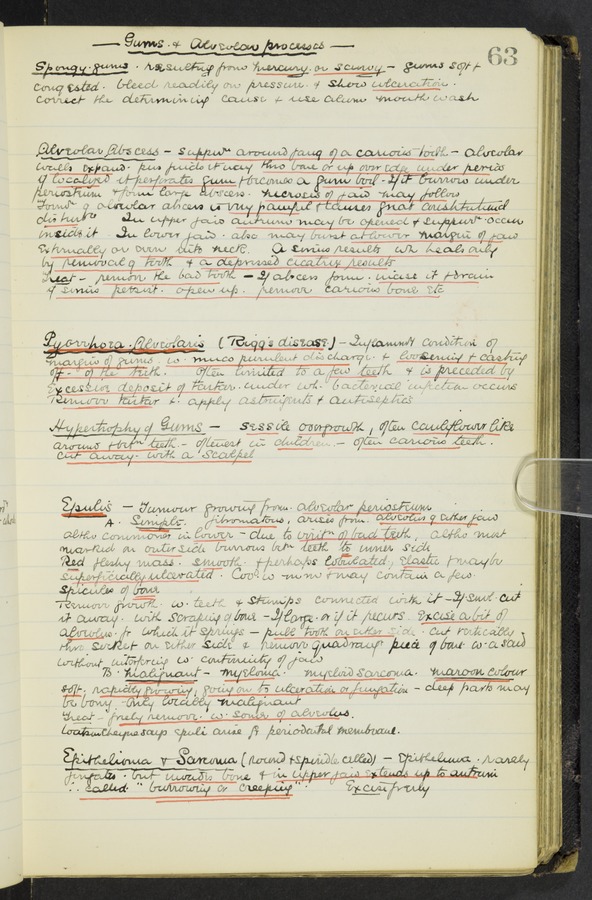 63
— Gums & Alveolar processes —
Spongy gums . resulting from mercury or scurvy – gums soft &
congested . bleed readily on pressure . & show ulceration .
correct the determining cause & use alum mouth wash
Alveolar Abscess – suppurn around fang of a carious tooth – alveolar
walls expand . pus finds its way thro bone or up over edge under perios
if localised & perforates gum & becomes a gum boil . If it burrows under
periosteum & form large abscess . necrosis of jaw may follow
Formn of alveolar abscess is very painful & causes great constitutional
disturbce In upper jaw antrum may be opened & suppurn occur
inside it . In lower jaw . also may burst at lower margin of jaw
Externally or even into neck . A sinus results wh heals only
by removal of tooth & a depressed cicatrix results
Treat – remove the bad tooth – If abscess form . incise it & drain
if sinus persist . open up . remove carious bone etc
Pyorrhoea Alveolaris (Rigg's disease) – Inflammy condition of
margin of gums . w . muco purulent discharge . & loosening & casting
off of the teeth . often limited to a few teeth & is preceded by
Excessive deposit of tartar . under wh . bacterial infection occurs
Remove tartar & apply astringents & antiseptics
Hypertrophy of Gums – sessile overgrowth , often cauliflower like
around & btn teeth – oftenest in children – often carious teeth .
cut away . with a scalpel
Epulis – Tumour growing from alveolar periosteum
A . Simple . fibromatous , arises from alveolus of either jaw
altho commoner in lower – due to irritn of bad teeth , altho most
marked on outer side burrows btn teeth to inner side
Red fleshy mass . smooth & perhaps lobulated , elastic & may be
superficially ulcerated . Covd w m m & may contain a few
spicules of bone
Remove growth . w . teeth & stumps connected with it – If small cut
it away . with scraping of bone – If large . or if it recurs . Excise a bit of
alveolus . fr which it springs – pull tooth on either side . cut vertically
thro socket on either side & remove quadrang piece of bone w . a saw
without interfering w . continuity of jaw
B . Malignant – myeloma . myeloid sarcoma . maroon colour
soft , rapidly growing , going on to ulceration or fungation – deep parts may
be bony . only locally malignant
Treat – freely remove . w . some of alveolus .
Watson Cheyne says Epuli arise fr periodontal membrane .
Epithelioma & Sarcoma (round & spindle celled) – Epithelioma . rarely
fungates . but invades bone & in upper jaw extends up to antrum
∴ called " burrowing or creeping " . Excise freely